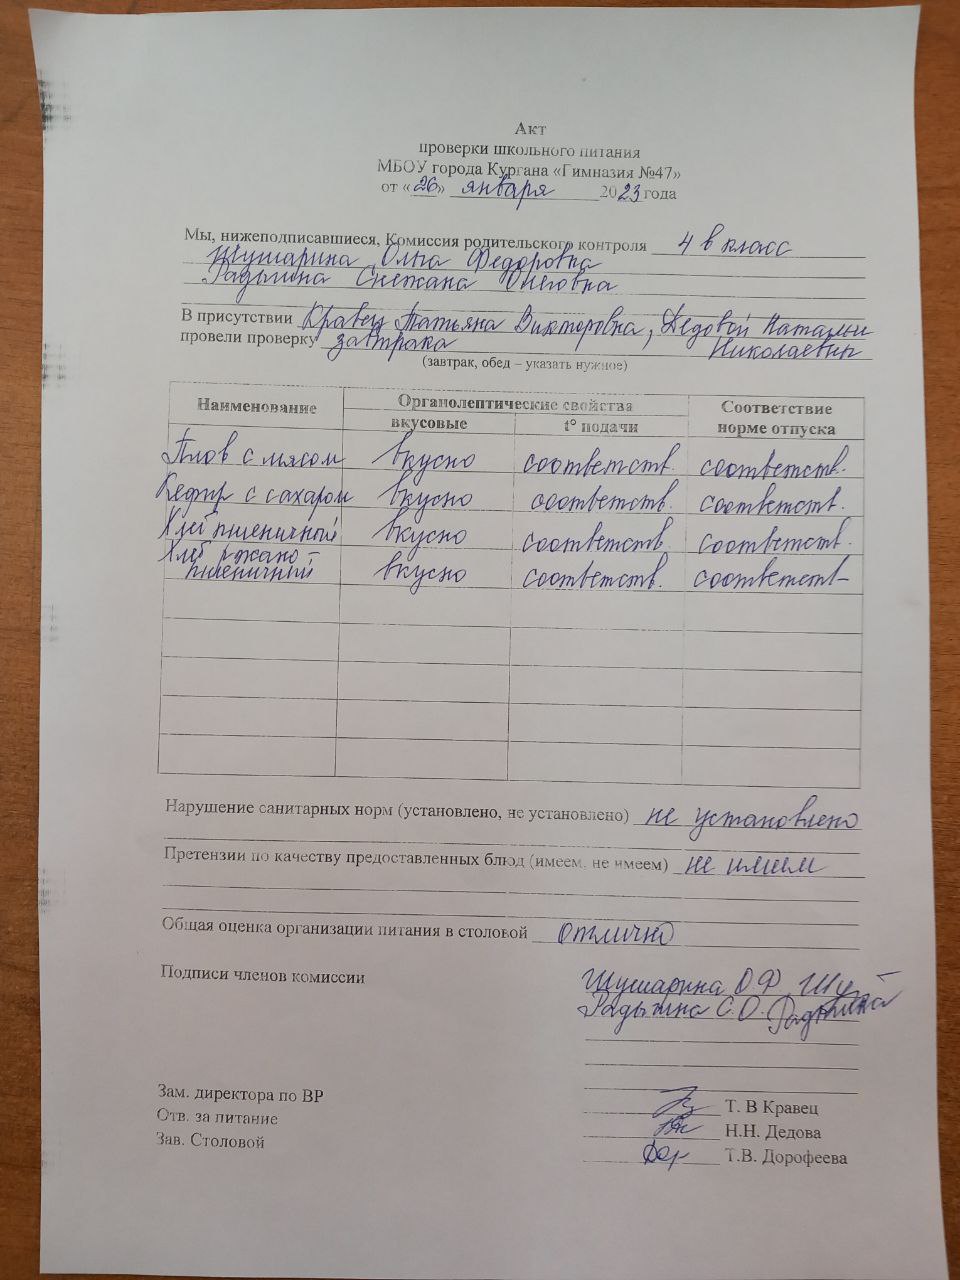 Акт
проверки школьного питания
МБОУ города Кургана «Гимназия №47»
от «26» января 2023 года
Мы, нижеподписавшиеся, Комиссия родительского контроля 4 в класс
Шушарина Ольга Федоровна
Снежана Олеговна
В присутствии Кравец Татьяна Викторовна, Дедовой Натальи
провели проверку завтрака Николаевны
(завтрак, обед – указать нужное)
Наименование Органолептические свойства Соответствие норме отпуска
вкусовые t° подачи
Плов с мясом вкусно соответств. соответств.
Кефир с сахаром вкусно соответств. соответств.
Хлеб пшеничный вкусно соответств. соответств.
Хлеб ржано-
пшеничный вкусно соответств. соответств-
Нарушение санитарных норм (установлено, не установлено) не установлено
Претензии по качеству предоставленных блюд (имеем, не имеем) не имеем
Общая оценка организации питания в столовой отлично
Подписи членов комиссии Шушарина О Ф
С.О.
Зам. директора по ВР Т. В Кравец
Отв. за питание Н.Н. Дедова
Зав. Столовой Т.В. Дорофеева